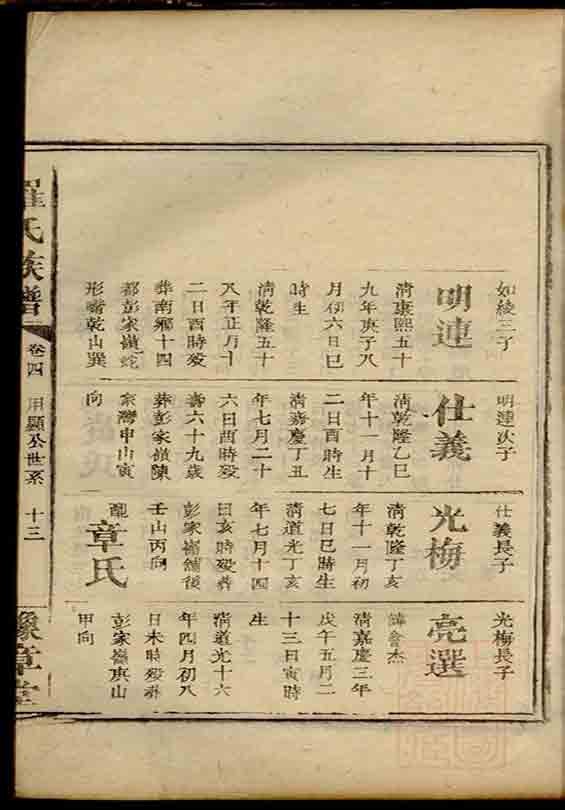 如綾三子
明連
清康熙五十
九年庚子八
月初六日巳
時生
清乾隆五十
八年正月十
二日酉時歿
葬南鄉十四
都彭家嶺蛇
形嘴乾山巽
明連次子
仕義
清乾隆乙巳
年十一月十
二日酉時生
清嘉慶丁丑
年七月二十
六日酉時歿
壽六十九歲
葬彭家嶺陳
家灣申山寅
向
仕義長子
光梅
清乾隆丁亥
年十一月初
七日巳時生
清道光丁亥
年七月十四
日亥時歿葬
彭家嶺舖後
壬山丙向
配
章氏
光梅長子
亮選
諱會杰
清嘉慶三年
戊午五月二
十三日寅時
生
清道光十六
年四月初八
日未時歿葬
彭家嶺庚山
甲向
羅氏族譜
卷四 用顯公世系 十三
豫章堂